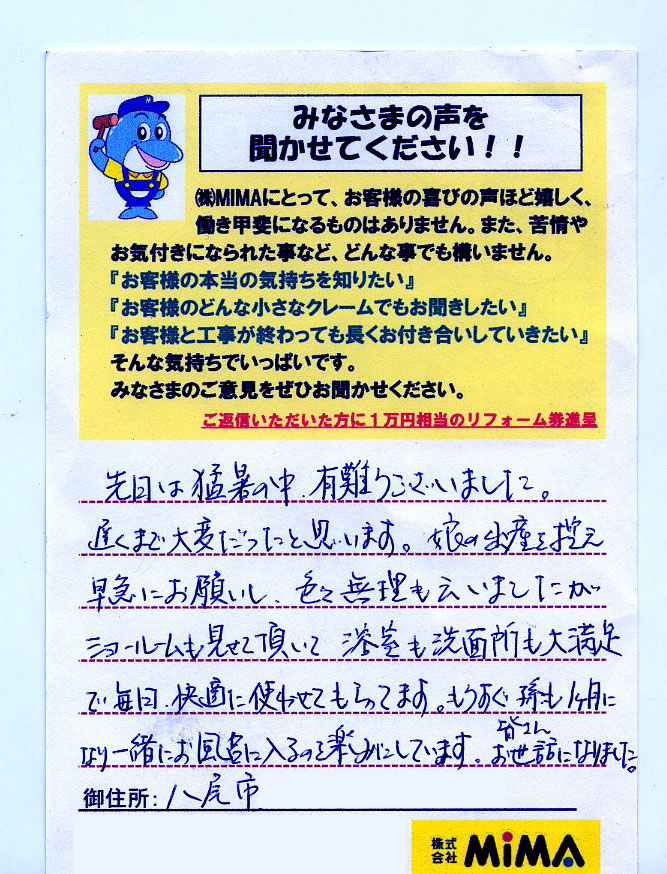 みなさまの声を
聞かせてください！！
㈱MIMAにとって、お客様の喜びの声ほど嬉しく、
働き甲斐になるものはありません。また、苦情や
お気付きになられた事など、どんな事でも構いません。
『お客様の本当の気持ちを知りたい』
『お客様のどんな小さなクレームでもお聞きしたい』
『お客様と工事が終わっても長くお付き合いしていきたい』
そんな気持ちでいっぱいです。
みなさまのご意見をぜひお聞かせください。
ご返信いただいた方に１万円相当のリフォーム券進呈
先日は猛暑の中、有難うございました。
遅くまで大変だったと思います。娘の出産を控え
早急にお願いし、色々無理も云いましたが
ショールームも見せて頂いて 浴室も洗面所も大満足
で毎日、快適に使わせてもらってます。もうすぐ孫も1ヶ月に
なり一緒にお風呂に入るのを楽しみにしています。皆さん
お世話になりました。
御住所：八尾市
株式会社 MiMA